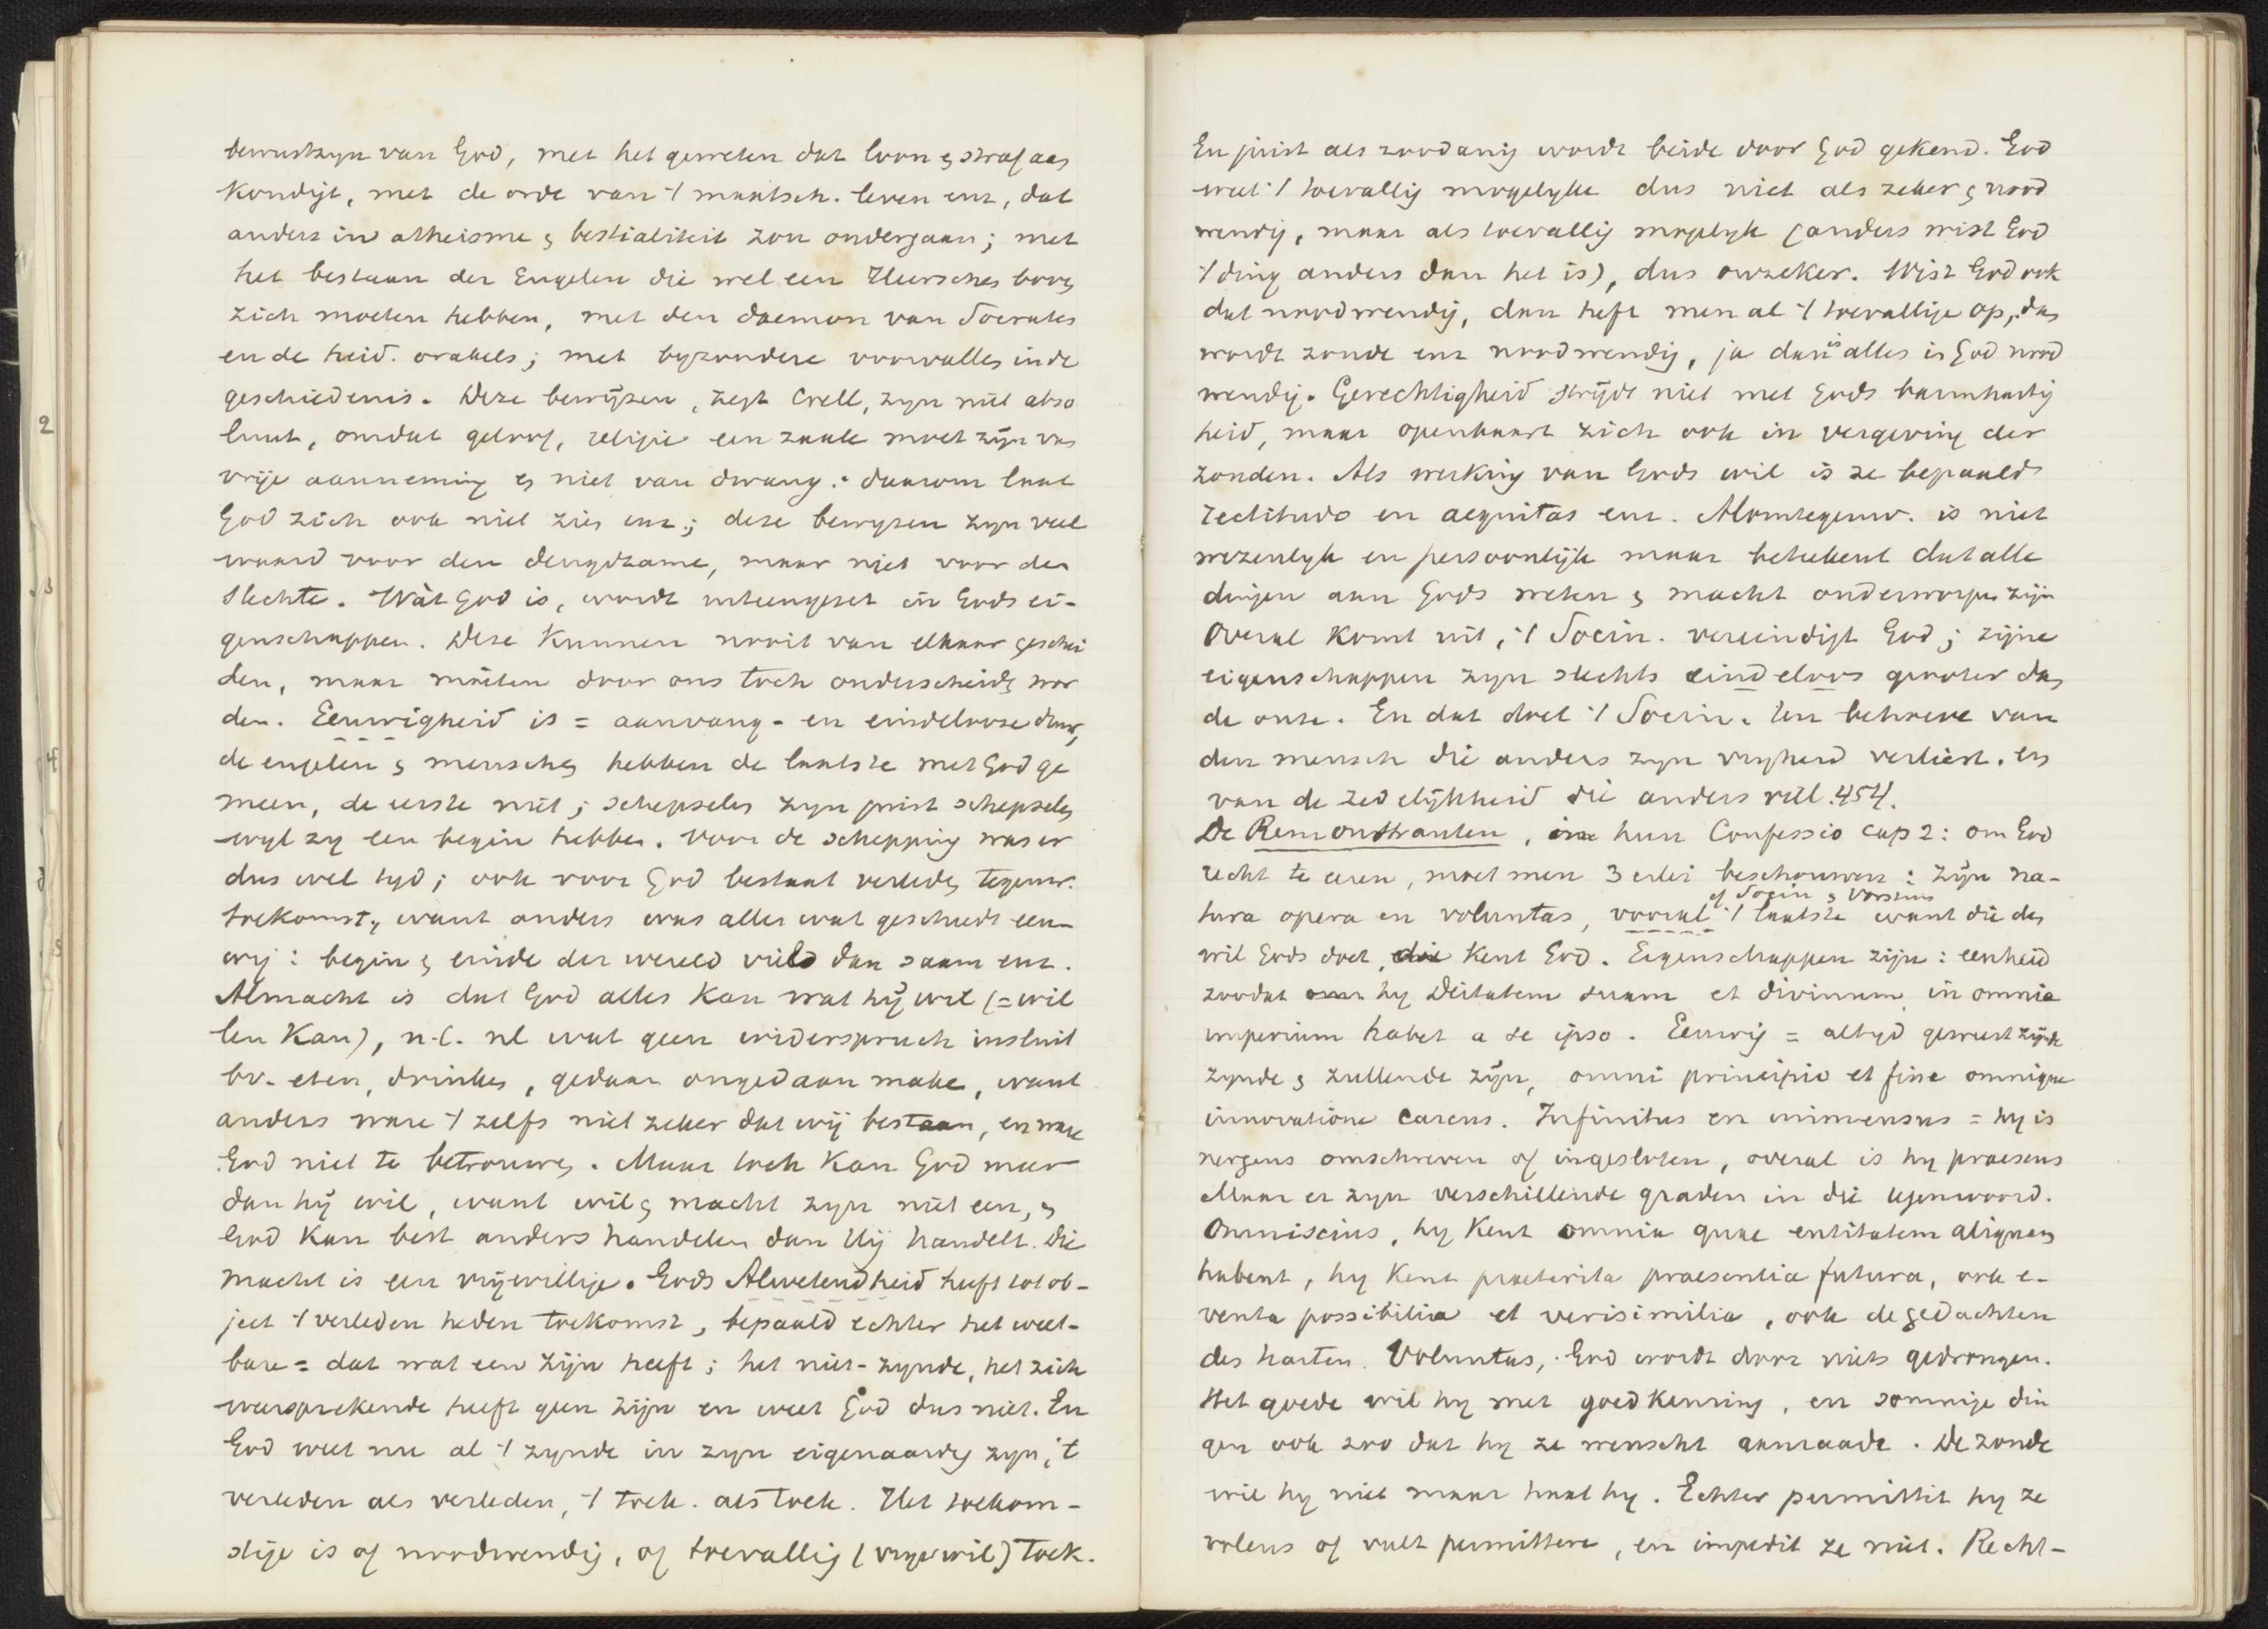 bewustzyn van God, met het geweten dat loon & straf aan
kondigt, met de orde van 't maatsch. leven enz, dat
anders in atheisme & bestialiteit zou ondergaan; met
het bestaan der Engelen die wel een Heerscher boven
zich moeten hebben, met den daemon van Socrates
en de heid. orakels; met byzondere voorvallen in de
geschiedenis. Deze bewijzen, zegt Crell, zyn niet abso
luut, omdat geloof, religie een zaak moet zijn van
vrije aanneming & niet van dwang: daarom laat
God zich ook niet zien enz; deze bewyzen zyn veel
waard voor den deugdzame, maar niet voor den
slechte. Wàt God is, wordt uiteengezet in Gods ei-
genschappen. Deze kunnen nooit van elkaar geschei
den, maar móéten door ons toch onderscheiden wor
den. Eeuwigheid is = aanvang- en eindelooze duur,
de engelen & menschen hebben de laatste met God ge
meen, de eerste niet; schepselen zyn juist schepselen
wyl zy een begin hebben. Voor de schepping was er
dus wel tyd; ook voor God bestaat verleden, tegenw.
toekomst, want anders was alles wat geschiedt eeu-
wig: begin & einde der wereld vield dan saam enz.
Almacht is dat God alles kan wat hij wil (= wil
len kan), n.l. nl wat geen widerspruch insluit
bv. eten, drinken, gedaan ongedaan make, want
anders ware 't zelfs niet zeker dat wij bestaan, en ware
God niet te betrouwen. Maar toch kan God meer
dan hij wil, want wil & macht zyn niet een, &
God kan best anders handelen dan Hij handelt. Die
macht is een vrijwillige. Gods Alwetendheid heeft tot ob-
ject 't verleden heden toekomst, bepaald echter het weet-
bare = dat wat een zijn heeft; het niet-zynde, het zich
weersprekende heeft geen zijn en weet God dus niet. En
God weet nu al 't zynde in zyn eigenaardig zyn, 't
verleden als verleden, 't toek. als toek. Het toekom-
stige is of noodwendig, of toevallig (vrye wil) toek.
En juist als zoodanig wordt beide door God gekend. God
weet 't toevallig mogelyke dus niet als zeker & nood
wendig, maar als toevallig mogelyk (anders wist God
't ding anders dan het is), dus onzeker. Wist God ook
dat noodwendig, dan heft men al 't toevallige op, dan
wordt zonde enz noodwendig, ja dan is alles in God nood
wendig. Gerechtigheid strijdt niet met Gods barmhartig
heid, maar openbaart zich ook in vergeving der
zonden. Als werking van Gods wil is ze bepaald
rectitudo en aequitas enz. Alomtegenw. is niet
wezenlyk en persoonlijk maar beteekent dat alle
dingen aan Gods weten & macht onderworpen zijn
Overal komt uit, 't Socin. vereindigt God; zijne
eigenschappen zyn slechts eindeloos grooter dan
de onze. En dat doet 't Socin. ten behoeve van
den mensch die anders zyn vryheid verliest. en
van de zedelijkheid die anders viel. 454.
De Remonstranten, in hun Confessio cap 2: om God
recht te eeren, moet men 3 erlei beschouwen: Zijn na-
of Socin & Vorstius
tura opera en voluntas, vooral 't laatste want die den
wil Gods doet, die kent God. Eigenschappen zijn: eenheid
zoodat hy Deitatem suam et divinum in omnia
imperium habet a se ipso. Eeuwig = altyd geweest zijnde
zynde & zullende zijn, omni principio et fine omnique
innovatione carens. Infinitus en immensus = hy is
nergens omschreven of ingesloten, overal is hy praesens
Maar er zyn verschillende graden in die tegenwoord.
Omniscius, hy kent omnia quae entitatem aliquam
habent, hy kent praeterita praesentia futura, ook e-
venta possibilia et verisimilia, ook de gedachten
des harten. Voluntas, God wordt door niets gedrongen.
Het goede wil hy met goedkeuring, en sommige din
gen ook zoo dat hy ze wenscht aanraadt. De zonde
wil hy niet maar haat hy. Echter permittit hy ze
volens of vult permittere, en impedit ze niet. Recht-
2
3
4
5